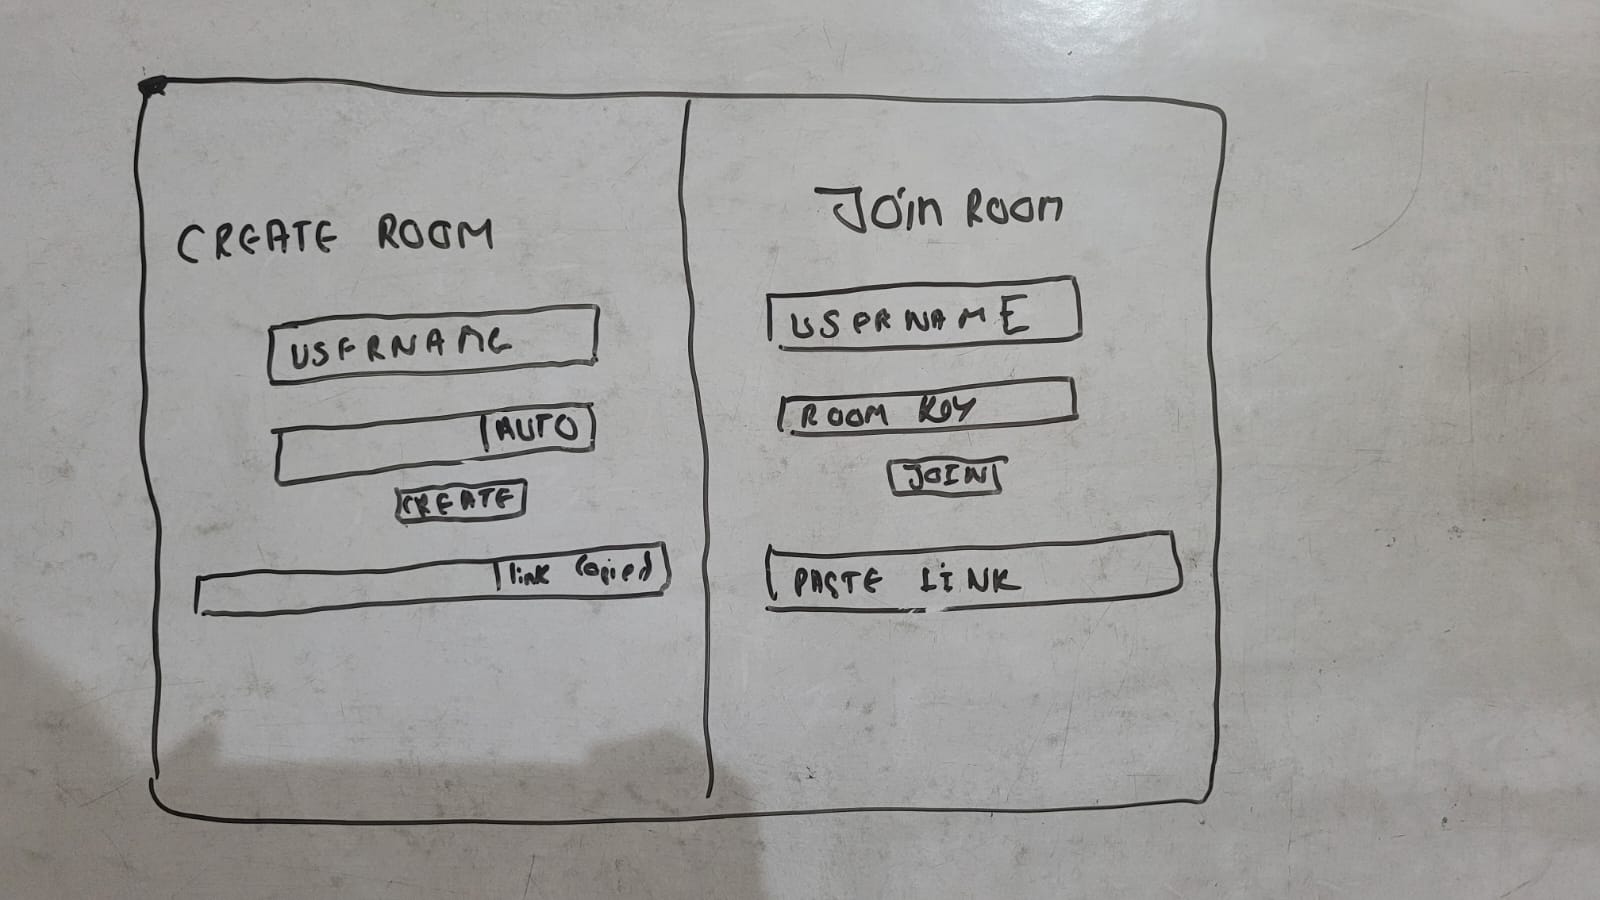 CREATE ROOM
USERNAME
AUTO
CREATE
link copied
JOIN ROOM
USERNAME
ROOM KEY
JOIN
PASTE LINK